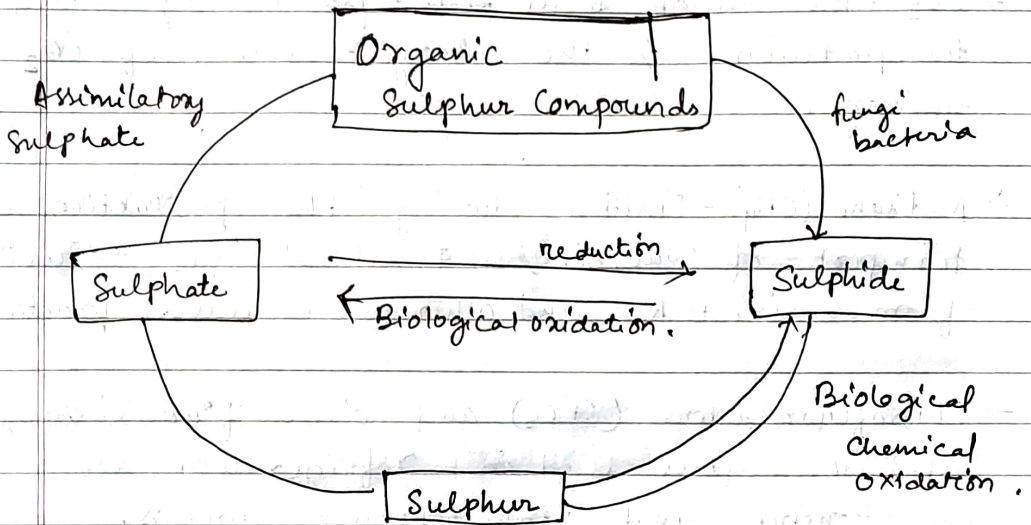 Organic
Sulphur Compounds
Assimilatory
Sulphate
fungi
bacteria
reduction
Sulphate
Sulphide
Biological oxidation.
Biological
Chemical
Oxidation.
Sulphur